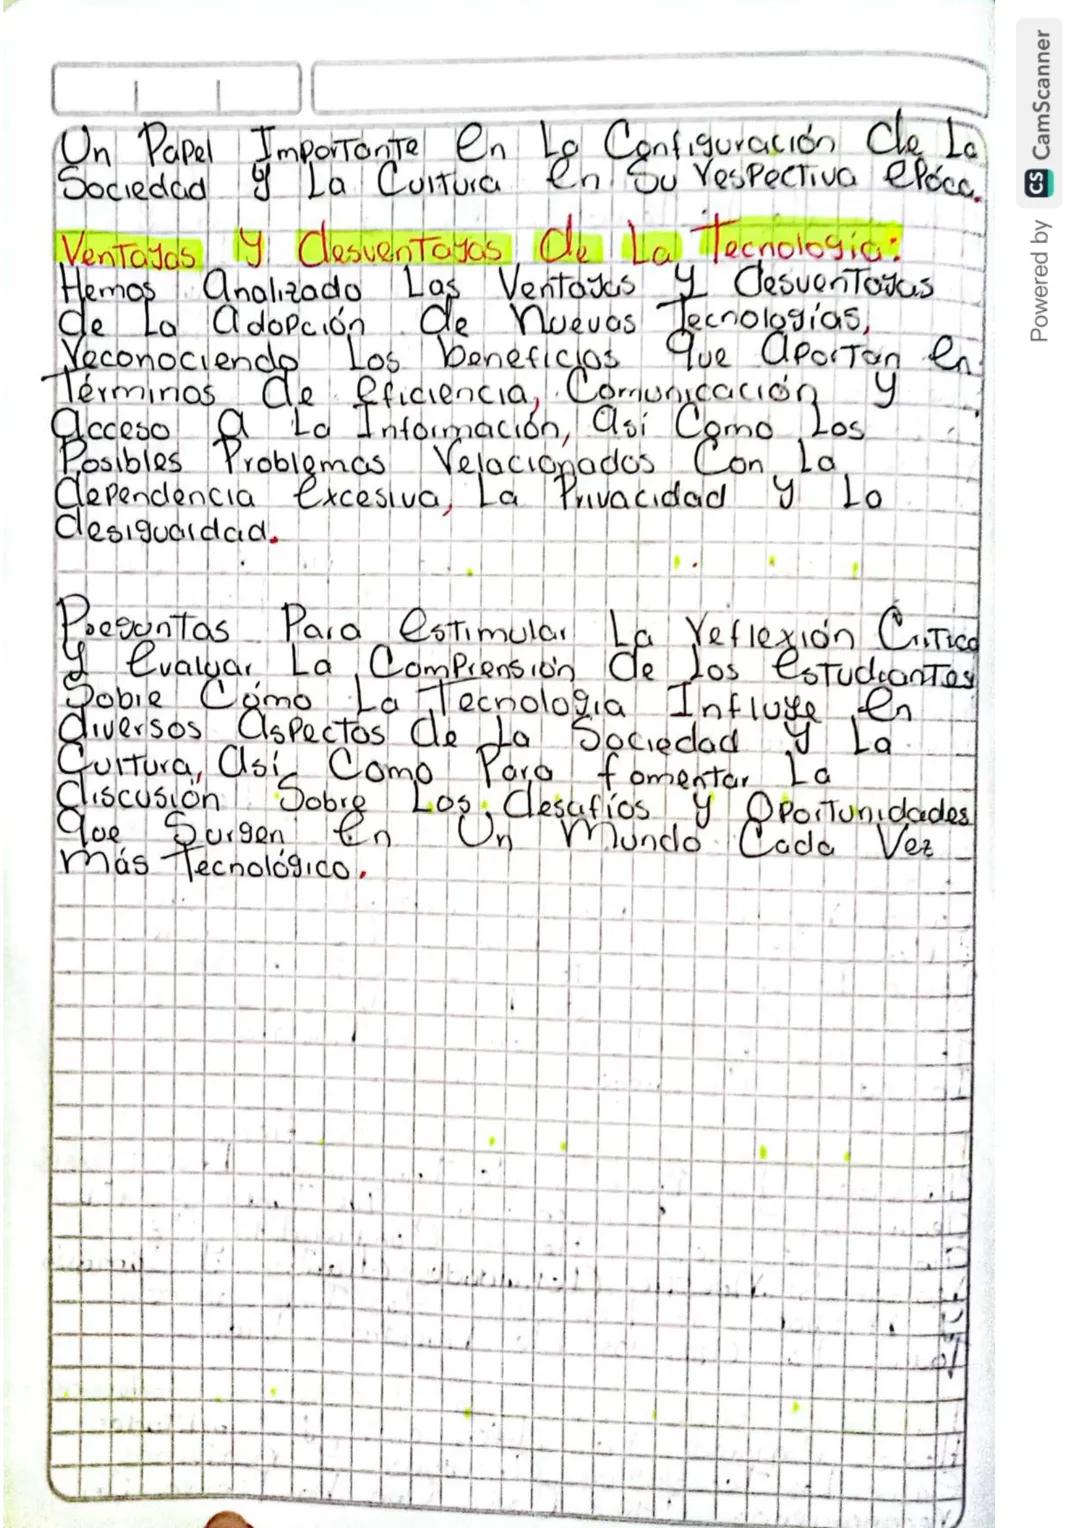 Un Papel Importante en La Configuración de La
Sociedad y La Cultura en Su respectiva epóca.
Ventajas y desventajas de La Tecnologia:
Hemos analizado Las Ventajas y desventajas
de La adopción de nuevas Tecnologías,
reconociendo Los beneficios que aportan en
Términos de eficiencia, Comunicación y
acceso a La Información, así Como Los
Posibles Problemas relacionados Con La
dependencia excesiva, La Privacidad y La
desigualdad.
Preguntas Para estimular La reflexión Critica
y evaluar La Comprensión de Los estudiantes
Sobre Cómo La Tecnologia Influye en
diversos aspectos de La Sociedad y La
Cultura, así Como Para fomentar La
discusión Sobre Los desafíos y Oportunidades
que Surgen en Un mundo Cada Vez
más Tecnológico.
Powered by CS CamScanner